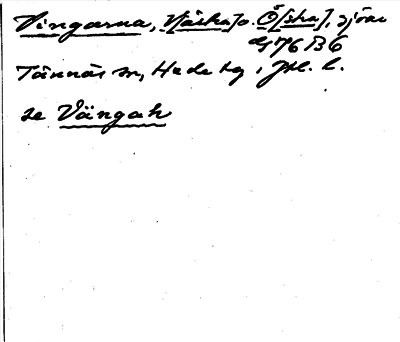 Vingarna, V[ästra] o. Ö[stra], sjöar
17G 7f B6
Tännäs sn, Hede tg, Jtl. l.
se Vängah